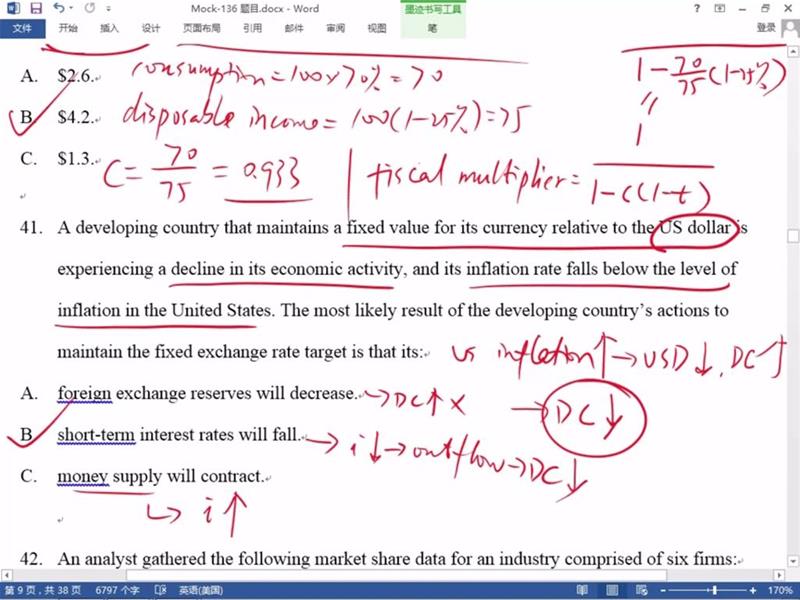 Mock-136 题目.docx - Word
墨迹书写工具
文件 开始 插入 设计 页面布局 引用 邮件 审阅 视图 笔
登录
A. $2.6. consumption = 100 x 70% = 70
1 - 70/75 (1-25%)
B. $4.2. disposable income = 100 (1-25%) = 75
C. $1.3. C = 70/75 = 0.933 fiscal multiplier = 1/1-c(1-t)
41. A developing country that maintains a fixed value for its currency relative to the US dollar is
experiencing a decline in its economic activity, and its inflation rate falls below the level of
inflation in the United States. The most likely result of the developing country's actions to
maintain the fixed exchange rate target is that its: US inflation ↑ → USD ↓, DC ↑
A. foreign exchange reserves will decrease. → DC ↑ x → DC ↓
B. short-term interest rates will fall. → i ↓ → outflow → DC ↓
C. money supply will contract.
↳ i ↑
42. An analyst gathered the following market share data for an industry comprised of six firms:
第 9 页，共 38 页 6797 个字 英语(美国) 170%